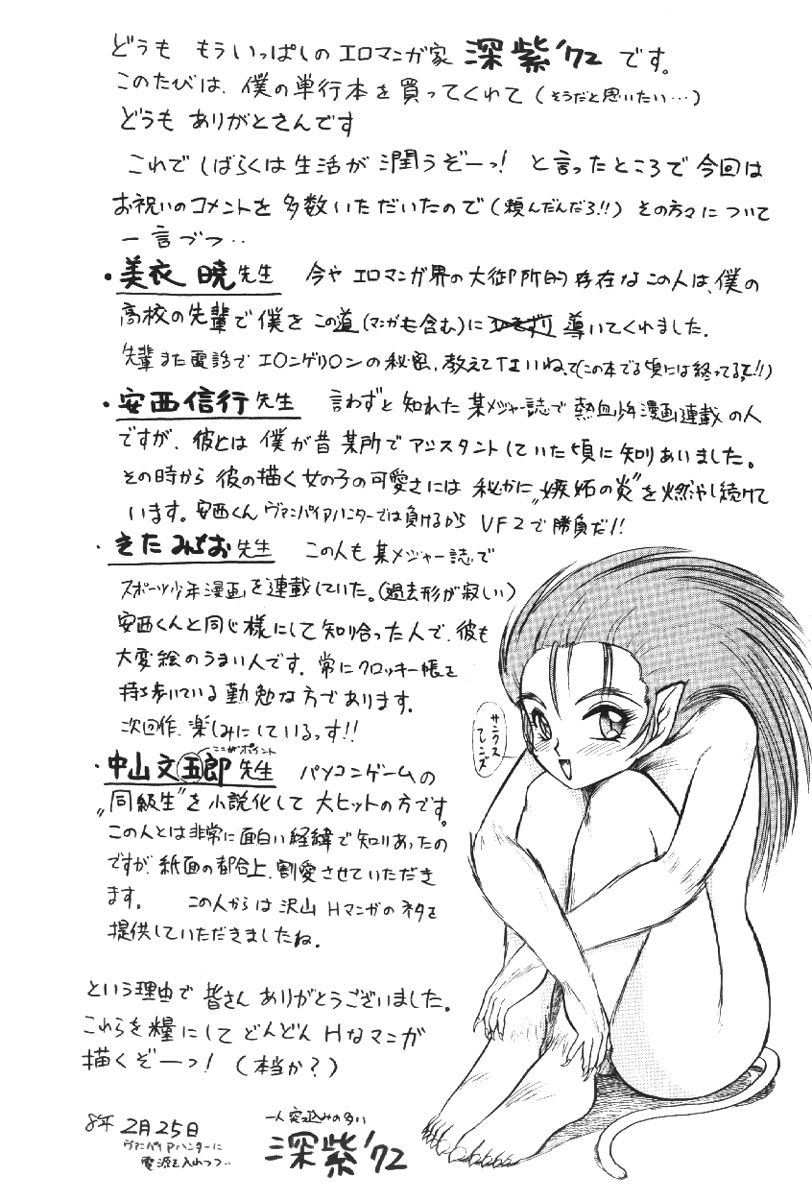 どうも もういっぱしのエロマンガ家 深紫'72 です。
このたびは、僕の単行本を買ってくれて(そうだと思いたい…)
どうも ありがとさんです
これでしばらくは生活が潤うぞーっ! と言ったところで今回は
お祝いのコメントを多数いただいたので(頼んだんだろ!!)その方々について
一言づつ‥
・美衣 暁先生 今やエロマンガ界の大御所的存在なこの人は、僕の
高校の先輩で僕をこの道(マンガも含む)に 導いてくれました.
先輩また電話でエ〇ンゲリ〇ンの秘密,教えて下さいね、て(この本でる頃には終ってるて!!)
・安西信行先生 言わずと知れた某メジャー誌で熱血少年漫画連載の人
ですが、彼とは僕が昔某所でアシスタントしていた頃に知りあいました。
その時から彼の描く女の子の可愛さには秘かに"嫉妬の炎"を燃やし続けて
います。安西くんヴァンパイアハンターでは負けるからVF2で勝負だ!!
・きたみちお先生 この人も某メジャー誌で
スポーツ少年漫画を連載していた。(過去形が寂しい)
安西くんと同じ様にして知り合った人で、彼も
大変絵のうまい人です。常にクロッキー帳を
持ち歩いている勤勉な方であります。
次回作、楽しみにしているっす!!
ここがポイント
・中山文五郎先生 パソコンゲームの
"同級生"を小説化して大ヒットの方です。
この人とは非常に面白い経緯で知りあったの
ですが、紙面の都合上、割愛させていただき
ます。 この人からは沢山Hマンガのネタを
提供していただきましたね.
サンクス
フレンズ
という理由で皆さんありがとうございました。
これらを糧にしてどんどんHなマンガ
描くぞーっ! (本当か?)
8年 2月25日
ヴァンパイアハンターに
電源を入れつつ‥
一人突っ込みの多い
深紫'72